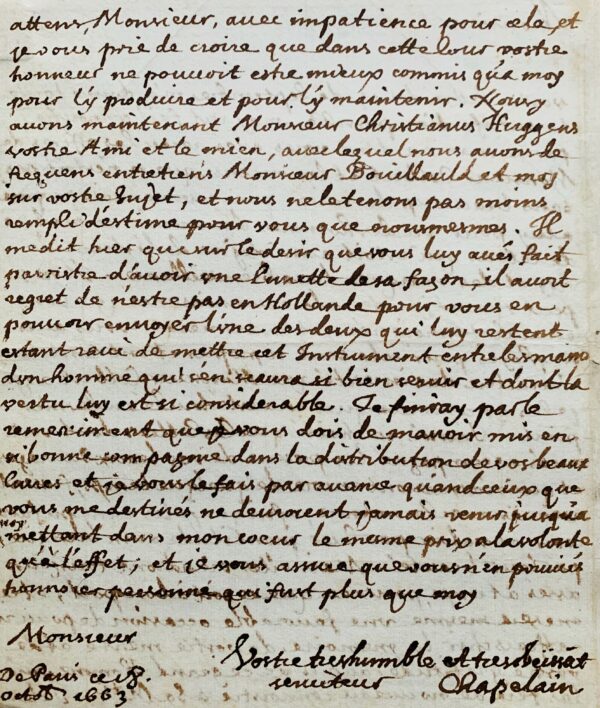 attens, Monsieur, avec impatience pour cela, et
je vous prie de croire que dans cette Cour vostre
honneur ne pouvoit estre mieux commis qu'a moy
pour l'y produire et pour l'y maintenir. Nous
avons maintenant Monsieur Christianus Huggens
vostre Ami et le mien, avec lequel nous avons de
frequens entretiens Monsieur Bouillauld et moy
sur vostre sujet, et nous ne le tenons pas moins
rempli d'estime pour vous que nous mesmes. Il
me dit hier que sur le desir que vous luy avés fait
paroistre d'avoir une Lunette de sa façon, il avoit
regret de n'estre pas en Hollande pour vous en
pouvoir envoyer l'une des deux qui luy restent
estant ravi de mettre cet Instrument entre les mains
d'un homme qui s'en scaura si bien servir et dont la
vertu luy est si considerable. Je finiray par le
remerciment que je vous dois de m'avoir mis en
si bonne compagnie dans la distribution de vos beaux
Livres et je vous le fais par avance quand ceux que
vous me destinés ne devroient jamais venir jusqu'a
moy mettant dans mon coeur le mesme prix a la volonte
qu'a l'effet; et je vous assure que vous n'en pouviés
honnorer personne qui fust plus que moy
Monsieur
De Paris ce 18.
octob 1663
Vostre tres humble et tres obeissāt
serviteur Chapelain